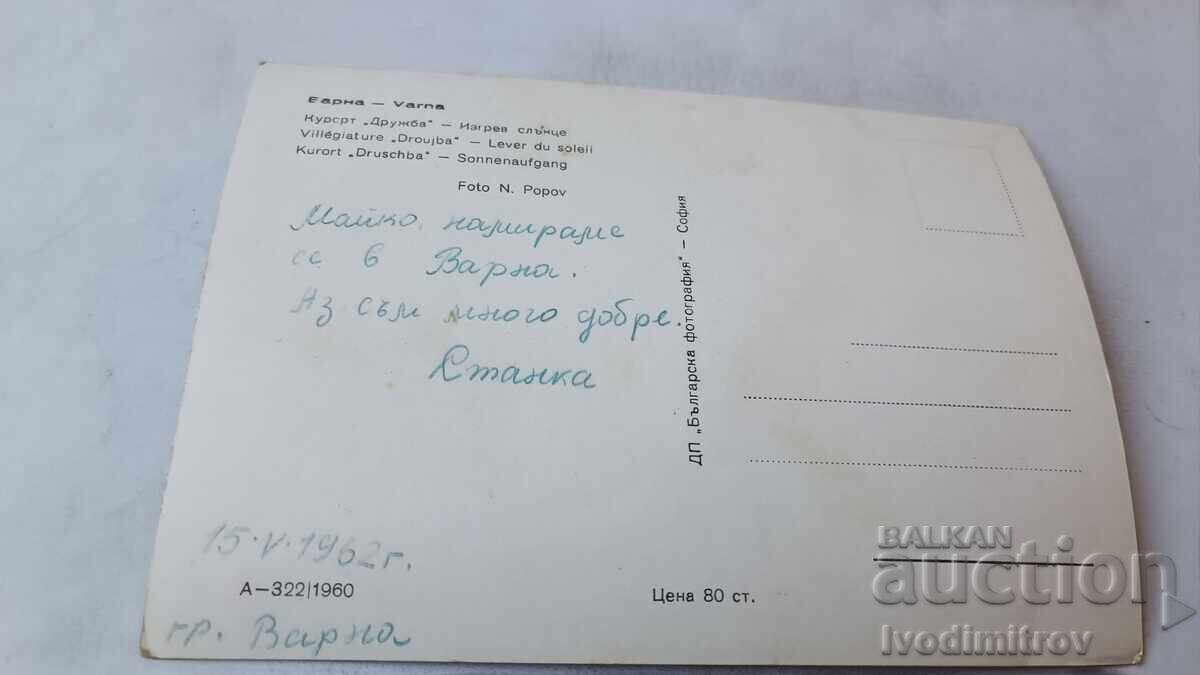 Варна — Varna
Курорт „Дружба" — Изгрев слънце
Villégiature „Droujba" — Lever du soleil
Kurort „Druschba" — Sonnenaufgang
Foto N. Popov
Майко, намираме
се в Варна.
Аз съм много добре.
Станка
15.V.1962 г.
А—322|1960
гр. Варна
ДП „Българска фотография" — София
Цена 80 ст.
BALKAN
auction
Ivodimitrov